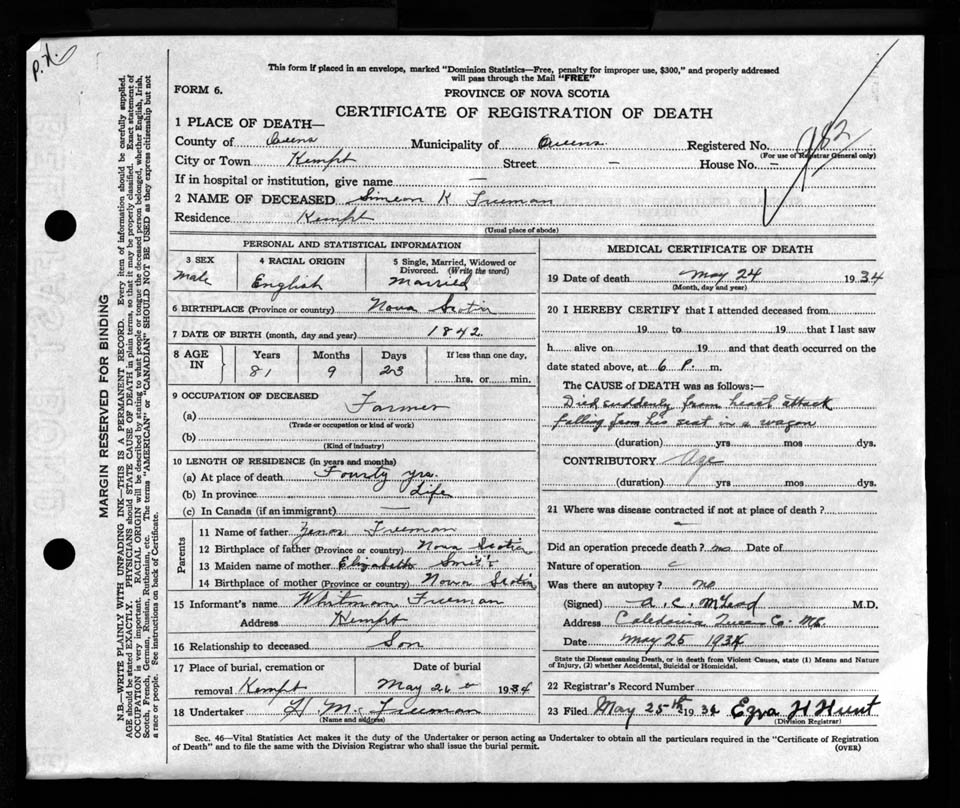 P.X.
This form if placed in an envelope, marked "Dominion Statistics—Free, penalty for improper use, $300," and properly addressed
will pass through the Mail "FREE"
FORM 6.
PROVINCE OF NOVA SCOTIA
CERTIFICATE OF REGISTRATION OF DEATH
982
1 PLACE OF DEATH—
County of Queens Municipality of Queens Registered No.
(For use of Registrar General only)
City or Town Kempt Street — House No. -
If in hospital or institution, give name —
2 NAME OF DECEASED Simeon K Freeman
Residence Kempt
(Usual place of abode)
PERSONAL AND STATISTICAL INFORMATION
3 SEX
male
4 RACIAL ORIGIN
English
5 Single, Married, Widowed or
Divorced. (Write the word)
Married
6 BIRTHPLACE (Province or country) Nova Scotia
7 DATE OF BIRTH (month, day and year) 1842
8 AGE
IN
Years Months Days If less than one day,
81 9 23 hrs. or min.
9 OCCUPATION OF DECEASED
(a) Farmer
(Trade or occupation or kind of work)
(b)
(Kind of industry)
10 LENGTH OF RESIDENCE (in years and months)
(a) At place of death Fourty yrs.
(b) In province Life
(c) In Canada (if an immigrant) —
Parents
11 Name of father Zenos Freeman
12 Birthplace of father (Province or country) Nova Scotia
13 Maiden name of mother Elizabeth
14 Birthplace of mother (Province or country) Nova Scotia
15 Informant's name Whitman Freeman
Address Kempt
16 Relationship to deceased Son
17 Place of burial, cremation or Date of burial
removal Kempt May 26 1934
18 Undertaker H. M. Freeman
(Name and address)
MEDICAL CERTIFICATE OF DEATH
19 Date of death May 24 1934
(Month, day and year)
20 I HEREBY CERTIFY that I attended deceased from
19 to 19 that I last saw
h alive on 19 and that death occurred on the
date stated above, at 6 P. m.
The CAUSE of DEATH was as follows:—
Died suddenly from heart attack
falling from his seat in a wagon
(duration) yrs mos dys.
CONTRIBUTORY Age
(duration) yrs mos dys.
21 Where was disease contracted if not at place of death?
Did an operation precede death? no Date of
Nature of operation
Was there an autopsy? no
(Signed) A. C. McLeod M.D.
Address Caledonia Queens Co. NS.
Date May 25 1934
State the Disease causing Death, or in death from Violent Causes, state (1) Means and Nature
of Injury, (2) whether Accidental, Suicidal or Homicidal.
22 Registrar's Record Number
23 Filed May 25th 1934 Ezra H Hunt
(Division Registrar)
Sec. 46—Vital Statistics Act makes it the duty of the Undertaker or person acting as Undertaker to obtain all the particulars required in the "Certificate of Registration
of Death" and to file the same with the Division Registrar who shall issue the burial permit.
(OVER)
MARGIN RESERVED FOR BINDING
N.B.—WRITE PLAINLY WITH UNFADING INK—THIS IS A PERMANENT RECORD. Every item of information should be carefully supplied.
AGE should be stated EXACTLY. PHYSICIANS should STATE CAUSE OF DEATH in plain terms, so that it may be properly classified. Exact statement of
OCCUPATION is very important. RACIAL ORIGIN will be described by stating to what people or tongue the deceased person belonged, whether English, Irish,
Scotch, French, German, Russian, Ruthenian, etc. The terms "AMERICAN" or "CANADIAN" SHOULD NOT BE USED as they express citizenship but not
a race or people. See instructions on back of Certificate.